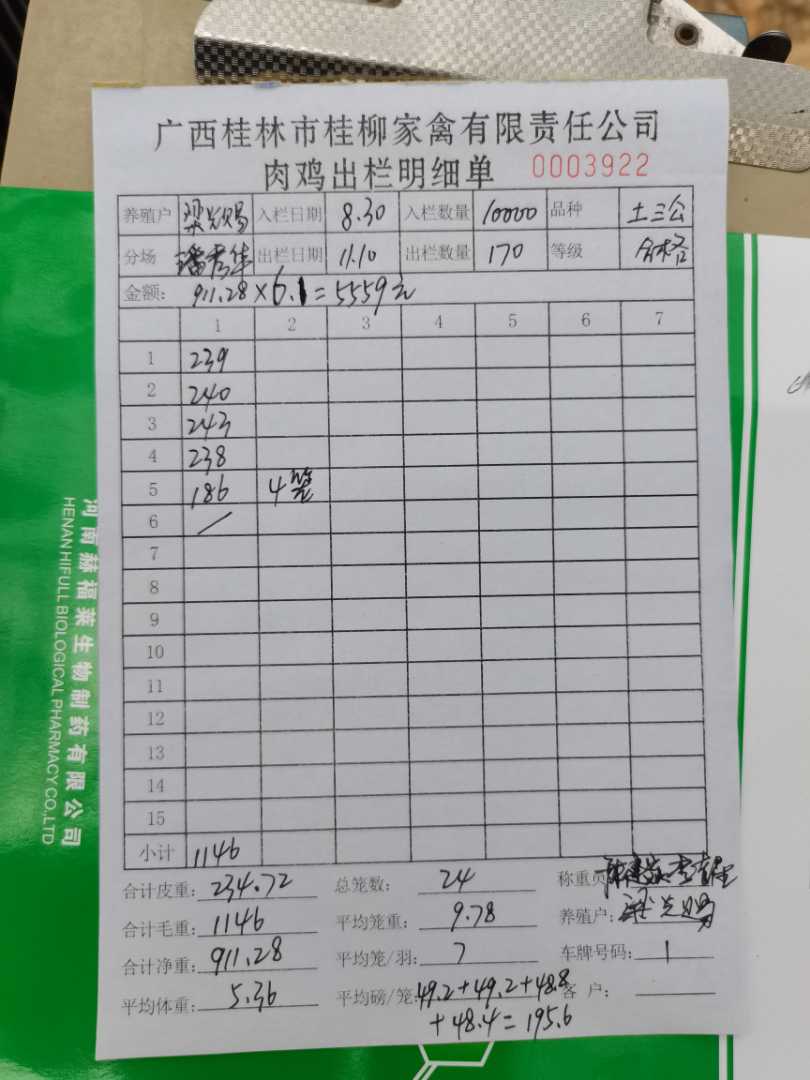 广西桂林市桂柳家禽有限责任公司
肉鸡出栏明细单 0003922
养殖户 梁光赐 入栏日期 8.30 入栏数量 10000 品种 土三公
分场 出栏日期 11.10 出栏数量 170 等级 合格
金额: 911.28×6.1=5559元
1 2 3 4 5 6 7
1 239
2 240
3 243
4 238
5 186 4笼
6 /
7
8
9
10
11
12
13
14
15
小计 1146
合计皮重: 234.72 总笼数: 24 称重员
合计毛重: 1146 平均笼重: 9.78 养殖户:
合计净重: 911.28 平均笼/羽: 7 车牌号码: 1
平均体重: 5.36 平均磅/笼: 49.2+49.2+48.8 客户:
+48.4=195.6
河南赫福莱生物制药有限公司
HENAN HIFULL BIOLOGICAL PHARMACY CO.,LTD